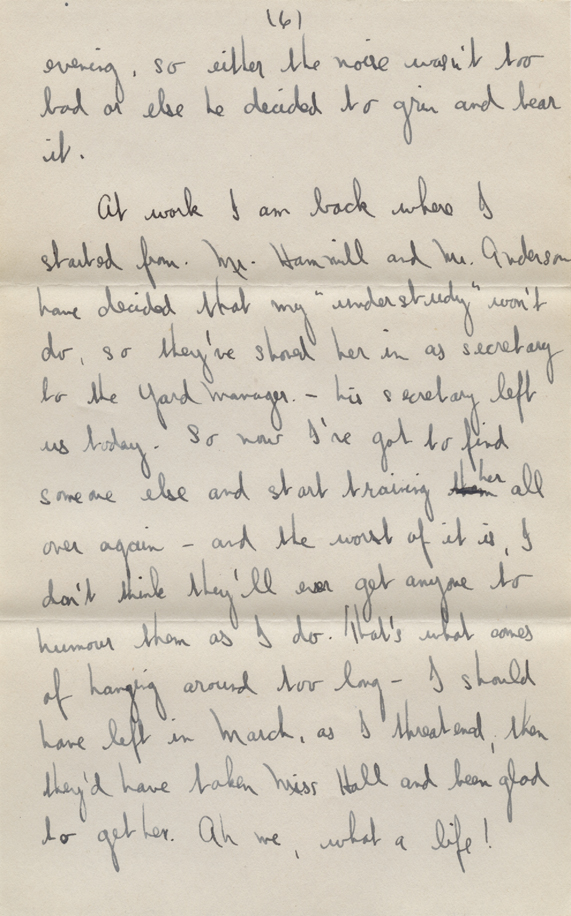 (6)
evening, so either the noise wasn't too
bad or else he decided to grin and bear
it.
At work I am back where I
started from. Mr. Hammill and Mr. Anderson
have decided that my "understudy" won't
do, so they've shoved her in as secretary
to the Yard Manager. - his secretary left
us today. So now I've got to find
someone else and start training them her all
over again - and the worst of it is, I
don't think they'll ever get anyone to
humour them as I do. That's what comes
of hanging around too long - I should
have left in March, as I threatend, then
they'd have taken Miss Hall and been glad
to get her. Ah me, what a life!